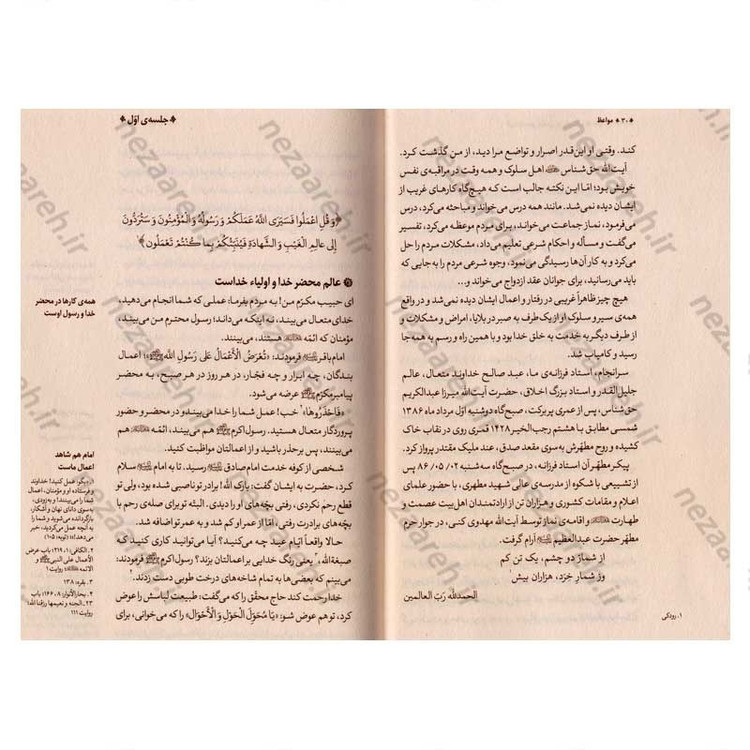 ۳۰ ❖ مواعظ
کند. وقتی او این‌قدر اصرار و تواضع مرا دید، از من گذشت کرد.
آیت‌الله حق‌شناس اهل سلوک و همه وقت در مراقبه‌ی نفس
خویش بود؛ امّا این نکته جالب است که هیچ‌گاه کارهای غریب از
ایشان دیده نمی‌شد. مانند همه درس می‌خواند و مباحثه می‌کرد، درس
می‌فرمود، نماز جماعت می‌خواند، برای مردم موعظه می‌کرد، تفسیر
می‌گفت و مسأله و احکام شرعی تعلیم می‌داد، مشکلات مردم را حل
می‌کرد و به کار آن‌ها رسیدگی می‌نمود، وجوه شرعی مردم را به جایی که
باید می‌رسانید، برای جوانان عقد ازدواج می‌خواند و...
هیچ چیز ظاهراً غریبی در رفتار و اعمال ایشان دیده نمی‌شد و در واقع
همه‌ی سیر و سلوک او از یک طرف به صبر در بلایا، امراض و مشکلات و
از طرف دیگر به خدمت به خلق خدا بود و با همین راه و رسم به همه جا
رسید و کامیاب شد.
سرانجام، استاد فرزانه‌ی ما، عبد صالح خداوند متعال، عالم
جلیل‌القدر و استاد بزرگ اخلاق، حضرت آیت‌الله میرزا عبدالکریم
حق‌شناس، پس از عمری پربرکت، صبح‌گاه دوشنبه اوّل مرداد ماه ۱۳۸۶
شمسی مطابق با هشتم رجب‌الخیر ۱۴۲۸ قمری روی در نقاب خاک
کشیده و روح مطهّرش به سوی مقعد صدق، عند ملیک مقتدر پرواز کرد.
پیکر مطهّر آن استاد فرزانه، در صبح‌گاه سه‌شنبه ۰۲/ ۰۵/ ۸۶ پس
از تشییعی با شکوه از مدرسه‌ی عالی شهید مطهری، با حضور علمای
اعلام و مقامات کشوری و هزاران تن از ارادتمندان اهل‌بیت عصمت و
طهارت و اقامه‌ی نماز توسط آیت‌الله مهدوی کنی، در جوار حرم
مطهّر حضرت عبدالعظیم آرام گرفت.
از شمار دو چشم، یک تن کم
وز شمار خِرَد، هزاران بیش
الحمدلله ربّ العالمین
۱. رودکی
❖ جلسه‌ی اوّل ❖
﴿وَ قُلِ اعْمَلُوا فَسَيَرَى اللّٰهُ عَمَلَكُمْ وَ رَسُولُهُ وَ الْمُؤْمِنُونَ وَ سَتُرَدُّونَ
إِلى عالِمِ الْغَيْبِ وَ الشَّهادَةِ فَيُنَبِّئُكُمْ بِما كُنْتُمْ تَعْمَلُونَ﴾۱
عالم محضر خدا و اولیاء خداست
ای حبیب مکرّم من! به مردم بفرما: عملی که شما انجام می‌دهید،
خدای متعال می‌بیند، نه اینکه می‌داند؛ رسول محترم من می‌بیند، و
مؤمنان که ائمّه هستند، می‌بینند.
امام باقر فرمودند: «تُعْرَضُ الْأَعْمَالُ عَلَى رَسُولِ اللَّهِ»؛ اعمال
بندگان، چه ابرار و چه فجّار، در هر روز در هر صبح، به محضر
پیامبر مکرّم عرضه می‌شود.
«فَاحْذَرُوهَا» خب! عمل شما را خدا می‌بیند و در محضر و حضور
پروردگار متعال هستید. رسول اکرم هم می‌بیند، ائمّه هم
می‌بینند، پس بر حذر باشید و از اعمالتان مواظبت کنید.
شخصی از کوفه خدمت امام صادق رسید. تا به امام سلام
کرد، حضرت به ایشان گفت: بارک الله! برادر تو ناصبی شده بود، ولی تو
قطع رحم نکردی، رفتی بچّه‌های او را دیدی. البتّه تو برای صله‌ی رحم با
بچّه‌های برادرت رفتی، امّا از عمر او کم شد و به عمر تو اضافه شد.
حالا واقعاً ایّام عید چه می‌کنید؟ آیا می‌توانی کاری کنید که
صبغة‌الله،۳ یعنی رنگ خدایی بر اعمالتان بزند؟ رسول اکرم هم
می‌بینم که بعضی‌ها به تمام شاخه‌های درخت طوبی دست زدند.۴
خدا رحمت کند حاج محقق را که می‌گفت: طبیعت لباسش را عوض
کرد، تو هم عوض شو: «یَا مُحَوِّلَ الْحَوْلِ وَ الْأَحْوَالِ» را که می‌خوانی، برای
همه‌ی کارها در محضر
خدا و رسول اوست
امام هم شاهد
اعمال ماست
۱. بگو: عمل کنید! خداوند
و فرستاده او و مؤمنان، اعمال
شما را می‌بینند! و به زودی،
به سوی دانای نهان و آشکار،
بازگردانده می‌شوید و شما را
به آنچه عمل می‌کردید، خبر
می‌دهد!» (توبه: ۱۰۵)
۲. الکافی/ ۱، ۲۱۹؛ باب عرض
الأعمال علی النبی و
الائمه؛ روایت ۱
۳. بقره: ۱۳۸
۴. بحارالأنوار/ ۸، ۱۶۶؛ باب
۲۳. الجنه و نعیمها رزقنا الله؛
روایت ۱۱۱
nezaareh.ir